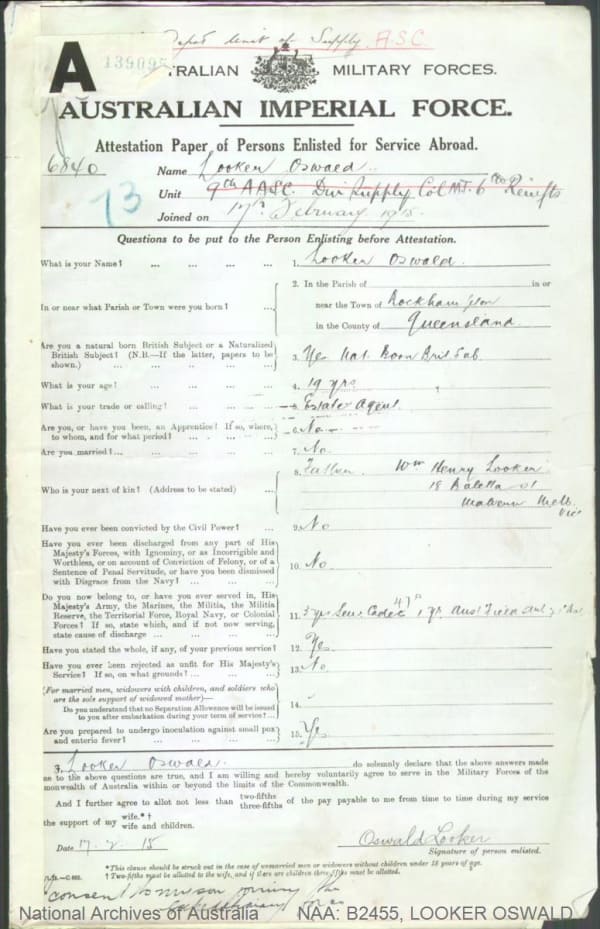 Depot Unit of Supply A.S.C.
A
139095
TRALIAN MILITARY FORCES.
AUSTRALIAN IMPERIAL FORCE.
Attestation Paper of Persons Enlisted for Service Abroad.
6840 Name Looker Oswald
Unit 9th AASC Div Supply Col MT. 6th Reinfts
73
Joined on 17th February 1915
Questions to be put to the Person Enlisting before Attestation.
What is your Name? ... ... ... 1. Looker Oswald.
2. In the Parish of in or
In or near what Parish or Town were you born? ... near the Town of Rockhampton
in the County of Queensland
Are you a natural born British Subject or a Naturalized
British Subject? (N.B.—If the latter, papers to be
shown.) ... ... ... ... 3. Yes Nat Born Brit Sub
What is your age? ... ... ... 4. 19 yrs
What is your trade or calling? ... ... 5. Estate Agent.
Are you, or have you been, an Apprentice? If so, where,
to whom, and for what period? ... ... ... 6. No
Are you married? ... ... ... 7. No.
8. Father Wm Henry Looker
Who is your next of kin? (Address to be stated) ... 18 St
Malvern Melb.
Vic
Have you ever been convicted by the Civil Power? ... 9. No
Have you ever been discharged from any part of His
Majesty's Forces, with Ignominy, or as Incorrigible and
Worthless, or on account of Conviction of Felony, or of a
Sentence of Penal Servitude, or have you been dismissed
with Disgrace from the Navy? ... ... ... 10. No.
Do you now belong to, or have you ever served in, His
Majesty's Army, the Marines, the Militia, the Militia
Reserve, the Territorial Force, Royal Navy, or Colonial
Forces? If so, state which, and if not now serving,
state cause of discharge ... ... ... 11. 3 yrs Sen. Cadec 47th 1 yr. Aust Field
Have you stated the whole, if any, of your previous service? 12. Yes
Have you ever been rejected as unfit for His Majesty's
Service? If so, on what grounds? ... ... 13. No.
(For married men, widowers with children, and soldiers who
are the sole support of widowed mother)—
Do you understand that no Separation Allowance will be issued
to you after embarkation during your term of service? ... 14.
Are you prepared to undergo inoculation against small pox
and enteric fever? ... ... ... 15. Yes
I, Looker Oswald. do solemnly declare that the above answers made
me to the above questions are true, and I am willing and hereby voluntarily agree to serve in the Military Forces of the
monwealth of Australia within or beyond the limits of the Commonwealth.
And I further agree to allot not less than two-fifths three-fifths of the pay payable to me from time to time during my service
the support of my wife.*† wife and children.
Date 17. 2. 15 Oswald Looker
Signature of person enlisted.
*This clause should be struck out in the case of unmarried men or widowers without children under 18 years of age.
† Two-fifths must be allotted to the wife, and if there are children three-fifths must be allotted.
consent to my son joining the
National Archives of Australia NAA: B2455, LOOKER OSWALD